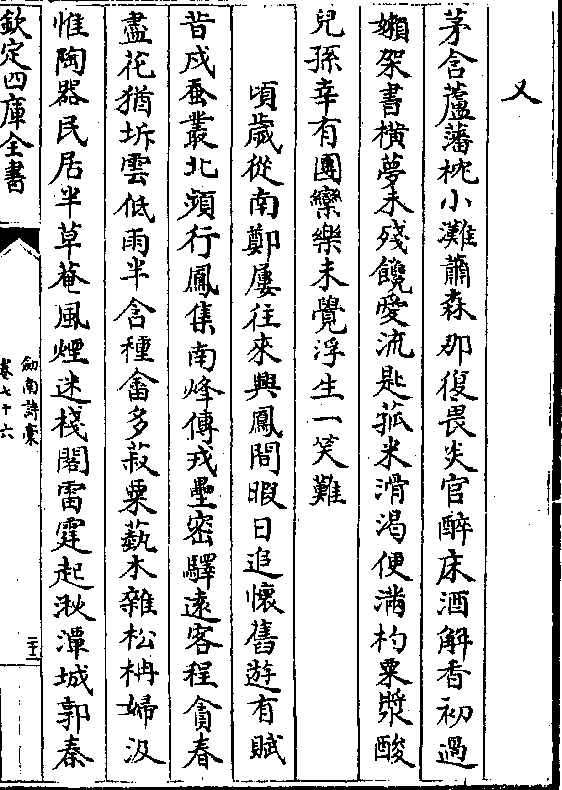 又
茅舍蘆藩枕小灘蕭森那復畏炎官醉床酒解香初過
嬾架書橫夢未殘饞愛流匙菰米滑渴便滿杓粟漿酸
兒孫幸有團欒樂未覺浮生一笑難
頃歲從南鄭屢往來興鳳間暇日追懷舊遊有賦
昔戍蚕叢北頻行鳳集南烽傳戎壘密驛遠客程貪春
盡花猶坼雲低雨半含種畬多菽粟蓺木雜松枏婦汲
惟陶器民居半草菴風煙迷棧閣雷霆起湫潭城郭秦
欽定四庫全書
劍南詩稾
卷七十六
二十一